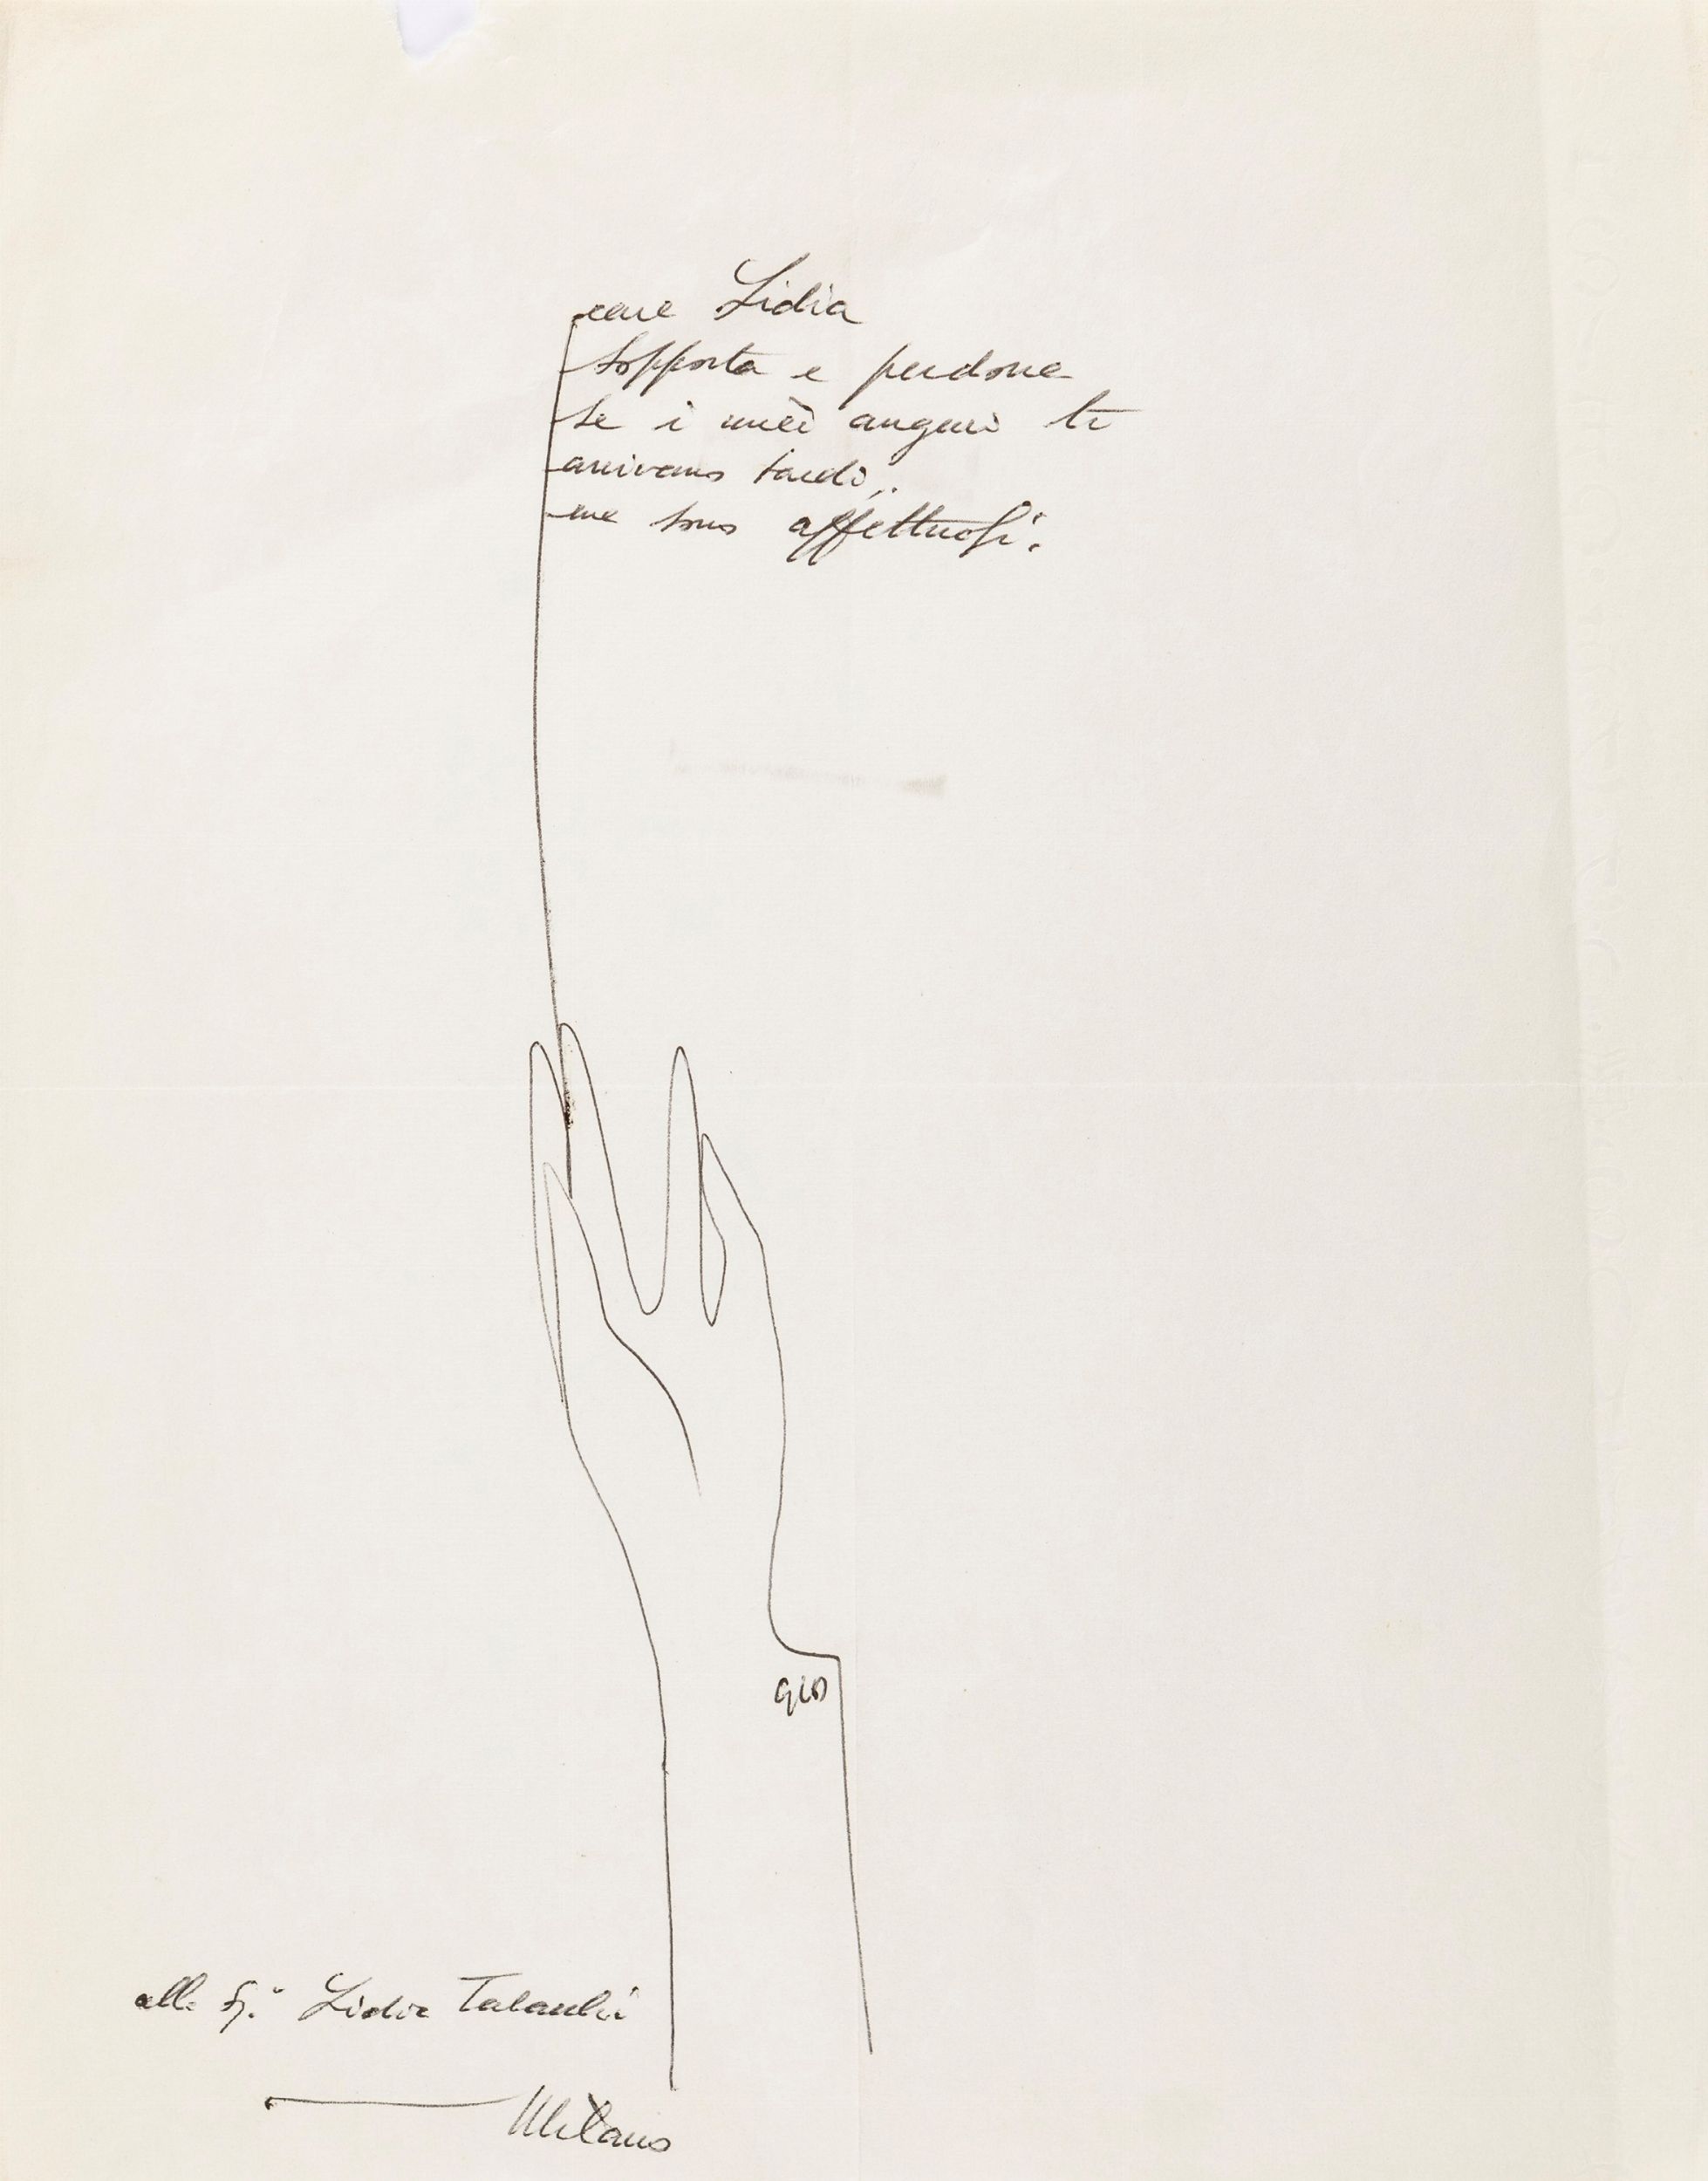 cara Lidia
sopporta e perdona
se i miei auguri ti
arrivano tardi,.
ma sono affettuosi.
gio
alla Sig.ª Lidia
Milano